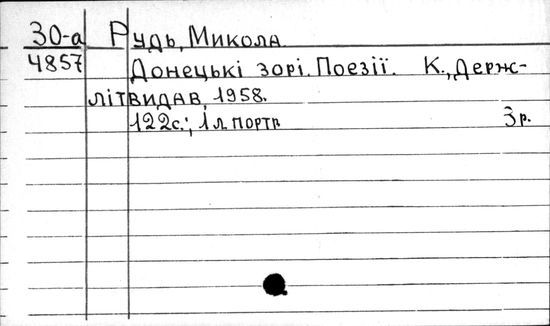 30-а Рудь, Микола
4857 Донецькі зорі. Поезії. К., Держ-
літвидав, 1958.
122с.; 1 л. портр. 3р.